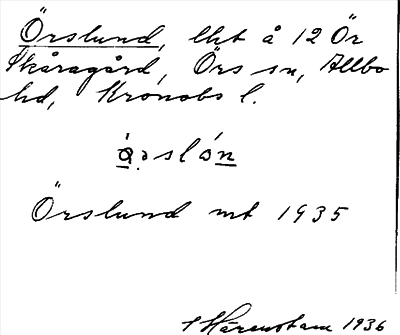 Örslund, lht å 12 Ör
Skåragård, Örs sn, Allbo
hd, Kronobs l.
Örslund mt 1935
S Härenstam 1936